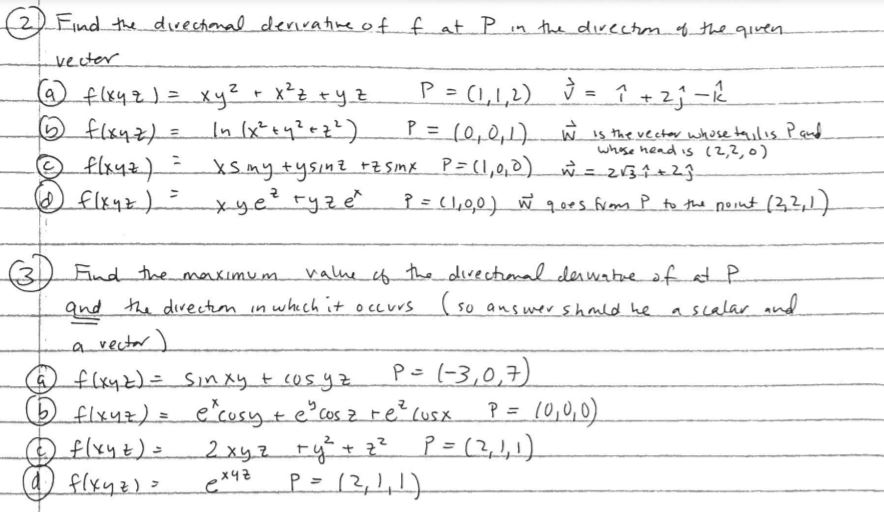 ② Find the directional derivative of f at P in the direction of the given
vector
ⓐ f(xyz) = xy² + x²z + yz P = (1,1,2) v⃗ = î + 2ĵ - k̂
ⓑ f(xyz) = ln (x² + y² + z²) P = (0,0,1) w⃗ is the vector whose tail is P and
whose head is (2,2,0)
ⓒ f(xyz) = x sin y + y sin z + z sin x P = (1,0,0) w⃗ = 2√3 î + 2ĵ
ⓓ f(xyz) = xye^z + yze^x P = (1,0,0) w⃗ goes from P to the point (2,2,1)
③ Find the maximum value of the directional derivative of at P
and the direction in which it occurs (so answer should be a scalar and
a vector)
ⓐ f(xyz) = sin xy + cos yz P = (-3,0,7)
ⓑ f(xyz) = e^x cos y + e^y cos z + e^z cos x P = (0,0,0)
ⓒ f(xyz) = 2xyz + y² + z² P = (2,1,1)
ⓓ f(xyz) = e^xyz P = (2,1,1)